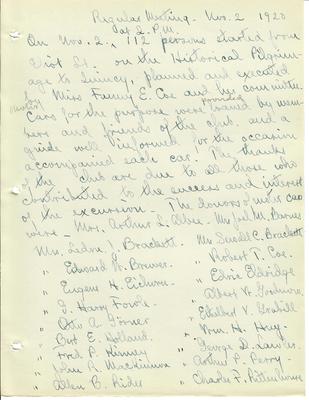 Regular Meeting. Nov. 2 1920
at 2 P.M.
On Nov. 2, 112 persons started from
Eliot St. on the Historical Pilgrim-
age to Quincy, planned and executed
by Miss Fanny E. Coe and her committee.
motor
Cars for the purpose were loaned by mem-
provided
bers and friends of the club, and a
guide well informed for the occasion
accompanied each car. The thanks
of the Club are due to all those who
contributed to the success and interest
of the excursion. The donors of motor cars
were - Mrs. Arthur L. Mrs. Joel M. Barnes
Mrs. J. Brackett. Mrs. Sewall C. Brackett
" Edward W. Brewer. " Robert T. Coe.
" Eugene H. " Edric Eldridge
" J. Harry " Albert W.
" Otto A. " Ethelbert V. Grabill
" Burt E. Holland. " Wm. H.
" Fred P. " George D.
" John R. Mackinnon " Arthur P. Perry.
" Allen B. Rider " Charles F. Rittenhouse